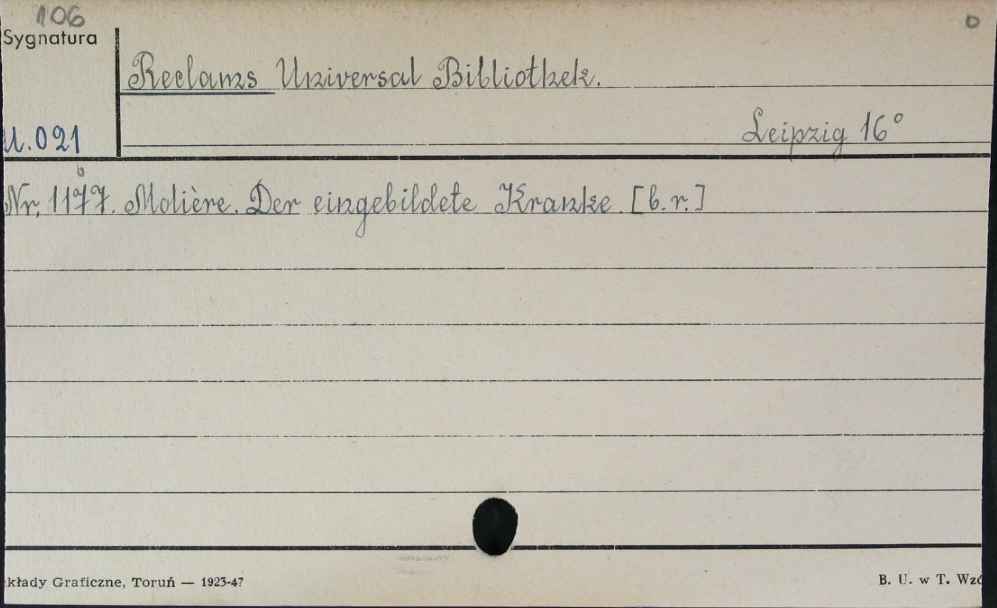 106
Sygnatura
Reclams Universal Bibliothek.
U.021
Leipzig 16°
Nr. 1177. Molière. Der eingebildete Kranke. [b.r.]
kłady Graficzne, Toruń — 1923-47
B. U. w T. Wzó